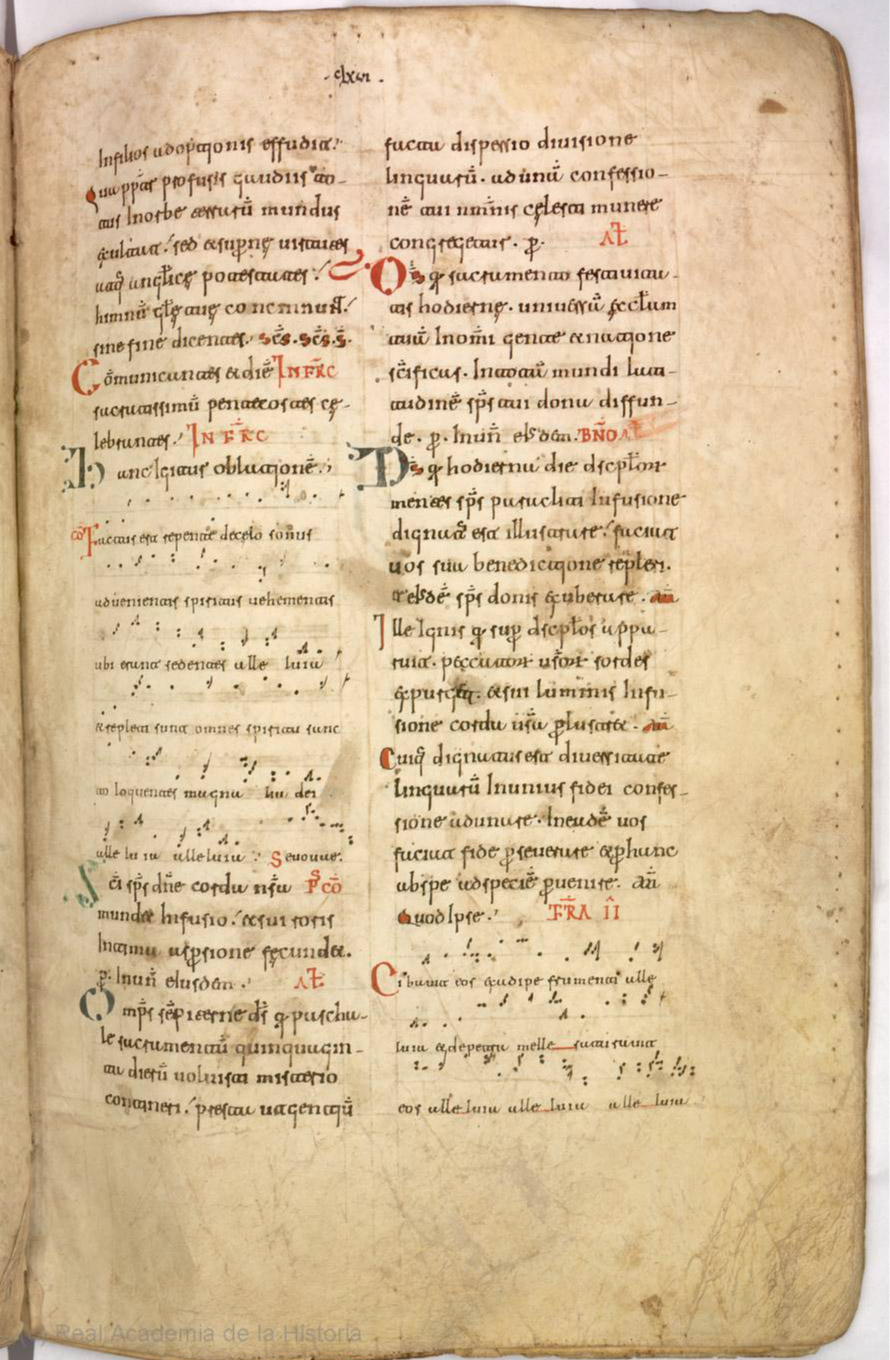 · clxvi ·
In filios adoptionis effudit.
Qua pp̄t profusis gaudiis to-
tus In orbe terrarū mundus
exultat. sed et supernę uirtutes
atq̨ angelicę potestates.
himnū glē tuę concinnunt.
sine fine dicentes. sc̄s. sc̄s. s̄.
Cōmunicantes et diē INFRC
sacratissimū pentecostes cę-
lebrantes. INFRC
Hanc Igitur oblationē.
cō Factus est repente de celo sonus
aduenientis spiritus uehementis
ubi erant sedentes alle luia
et repleti sunt omnes spiritu sanc
to loquentes magna lia dei
alle lu ia alleluia Seuouae.
Sc̄i sp̄s dn̄e corda nr̄a P̄s cō
mundet Infusio. et sui roris
Intima aspersione fecundet.
p. In un̄ eiusdem. AL̄
Omp̄s sēp iterne ds̄ q̨ pascha-
le sacramentū quinquagin-
ta dierū uoluisti misterio
contineri. presta ut gentiū
facta dispersio diuisione
linguarū. ad unū confessio-
nē tui nm̄nis cęlesti munere
congregetur. p. AL̄
Ds̄ q̨ sacramento festiuita-
tis hodiernę. uniuersā ęcclam
tuā In om̄i gente et natione
sc̄ificas. In totū mundi lati-
tudinē sp̄s tui dona diffun-
de. p. In un̄ eiusdem. BÑO AL̄
Ds̄ q̨ hodierna die discplor
mentes sp̄s paracliti Infusione
dignatꝰ est illustrare. faciat
uos sua benedictione repleri.
et eisdē sp̄s donis exuberare. am̄
Ille Ignis q̨ sup discplos appa-
ruit. peccator ur̄or sordes
expurget. et sui luminis Infu-
sione corda ur̄a plustret. am̄
Quiq̨ dignatus est diuersitate
linguarū In unius fidei confes-
sione adunare. In eadē uos
faciat fide pseuerare et p hanc
ab spe ad speciē puenire. am̄
Quod Ipse. FR̄A II
Cibauit eos ex adipe frumenti alle
luia et de petra melle saturauit
eos alle luia alle luia alle luia
Real Academia de la Historia